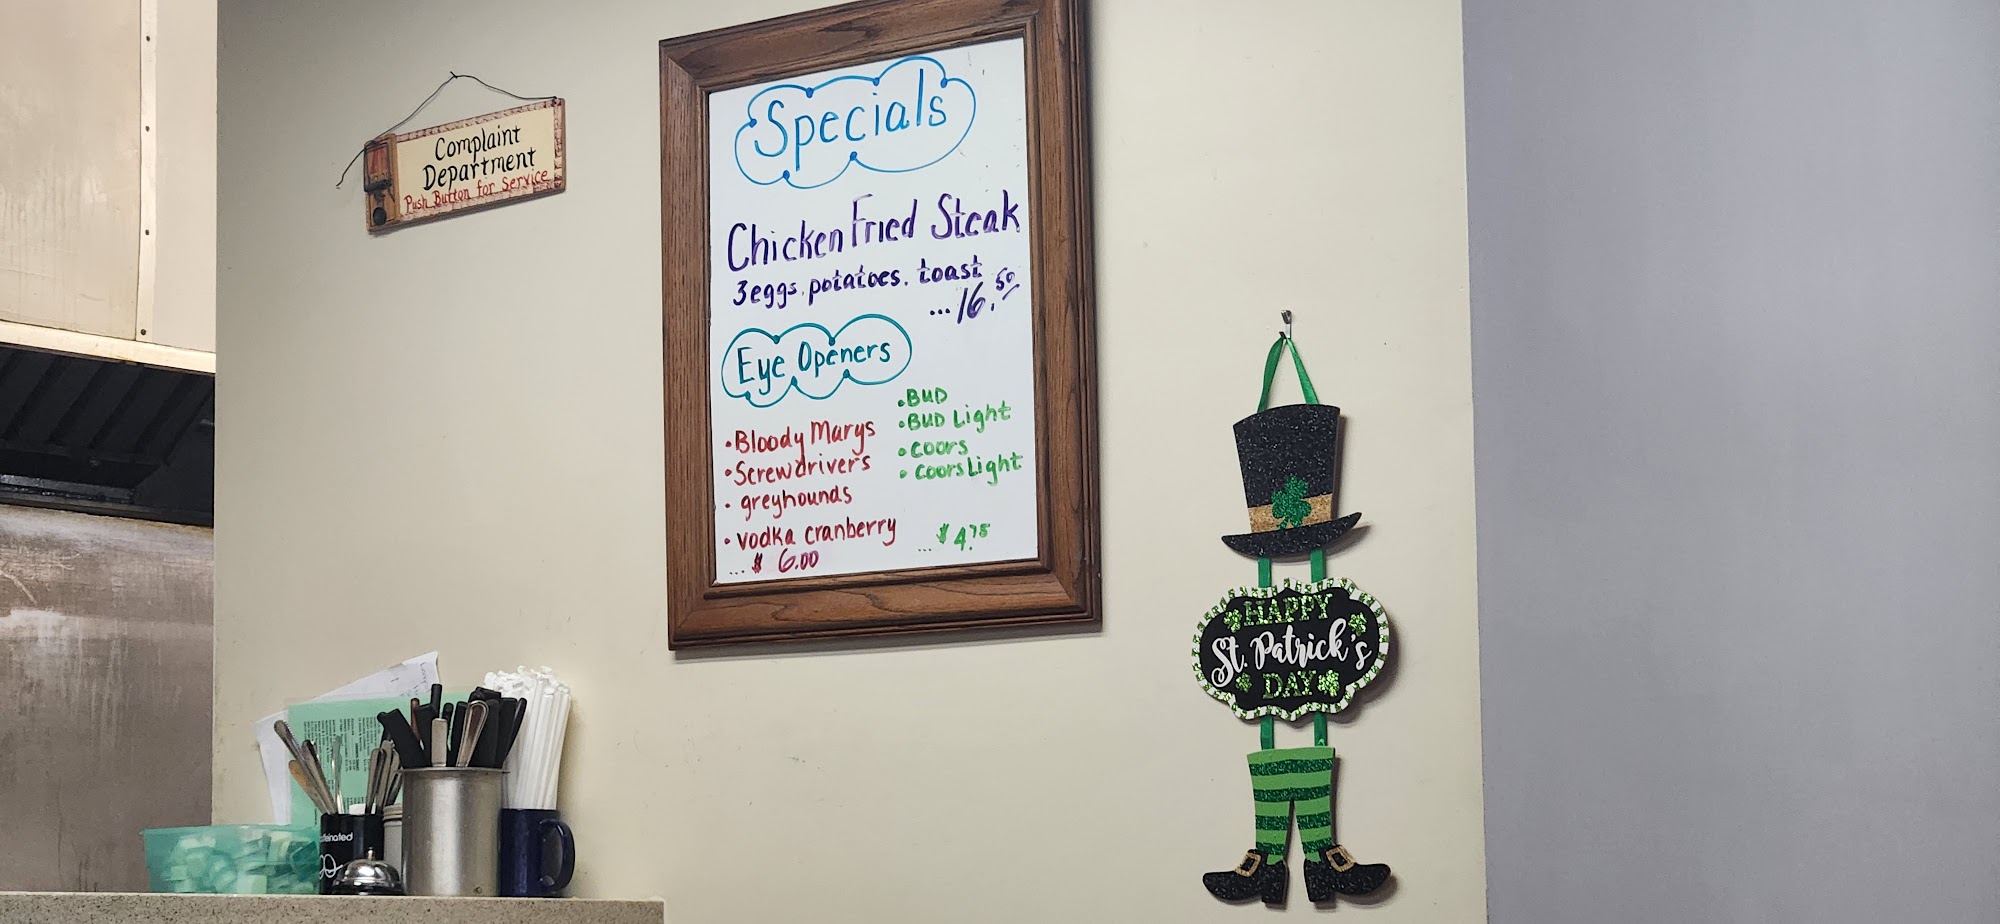 Complaint
Department
Push Button for Service
Specials
Chicken Fried Steak
3 eggs. potatoes. toast
...16.50
Eye Openers
• Bloody Marys
• Screwdrivers
• greyhounds
• vodka cranberry
... $ 6.00
• BUD
• BUD Light
• coors
• coors Light
... $ 4.75
HAPPY
St. Patrick's
DAY